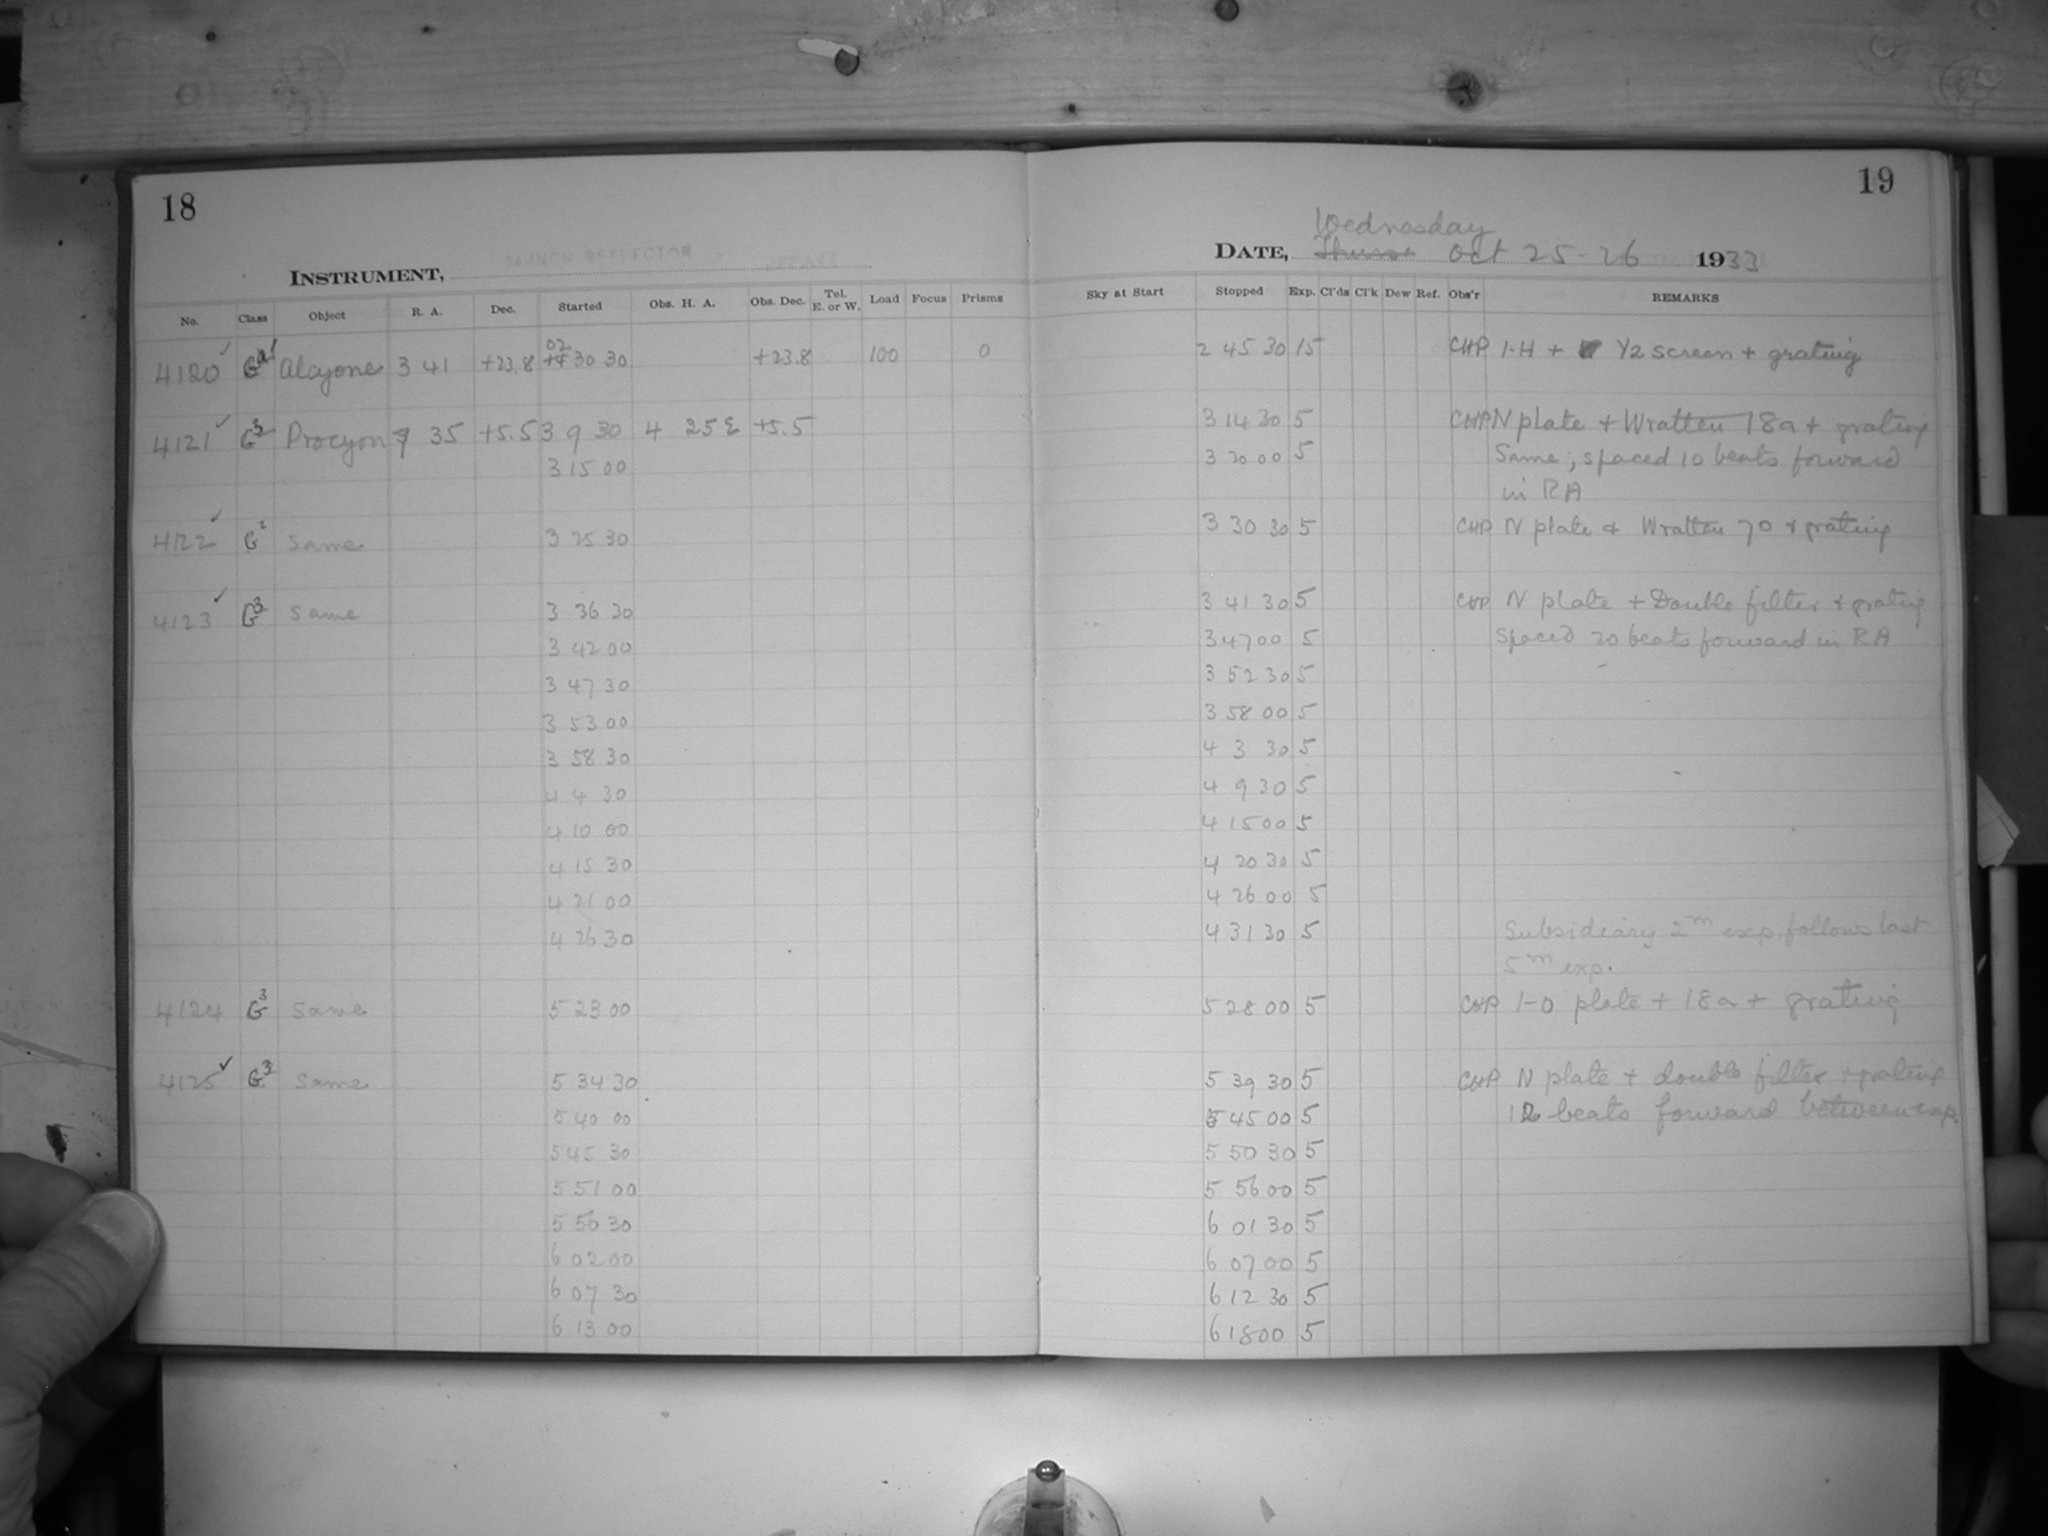 18
INSTRUMENT, 24-INCH REFLECTOR
No. Class Object R. A. Dec. Started Obs. H. A. Obs. Dec. Tel. E. or W. Load Focus Prisms
4120 ✓ G Alcyone 3 41 +23.8 02 30 30 +23.8 100 0
4121 ✓ G3 Procyon 7 35 +5.5 3 9 30 4 25 E +5.5
3 15 00
4122 ✓ G2 Same 3 25 30
4123 ✓ G3 Same 3 36 30
3 42 00
3 47 30
3 53 00
3 58 30
4 4 30
4 10 00
4 15 30
4 21 00
4 26 30
4124 G3 Same 5 23 00
4125 ✓ G3 Same 5 34 30
5 40 00
5 45 30
5 51 00
5 56 30
6 02 00
6 07 30
6 13 00
19
Wednesday
DATE, Thurs Oct 25-26 1933
Sky at Start Stopped Exp. Cl'ds Cl'k Dew Ref. Obs'r REMARKS
2 45 30 15 CHP 1-H + Y2 screen + grating
3 14 30 5 CHP N plate + Wratten 18a + grating
3 20 00 5 Same; spaced 10 beats forward
in RA
3 30 30 5 CHP N plate & Wratten 70 + grating
3 41 30 5 CHP N plate + Double filter + grating
3 47 00 5 spaced 20 beats forward in RA
3 52 30 5
3 58 00 5
4 3 30 5
4 9 30 5
4 15 00 5
4 20 30 5
4 26 00 5
4 31 30 5 Subsidiary 2m exp. follows last
5m exp.
5 28 00 5 CHP 1-O plate + 18a + grating
5 39 30 5 CHP N plate + double filter + grating
5 45 00 5 12 beats forward between exp.
5 50 30 5
5 56 00 5
6 01 30 5
6 07 00 5
6 12 30 5
6 18 00 5